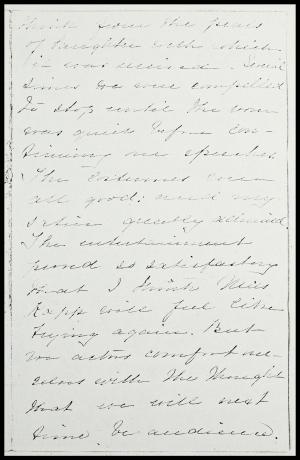 think from the peals
of laughter with which
it was received. Several
times we were compelled
to stop until the room
was quiet before con-
tinuing our speeches.
The costumes were
all good: and my
satin greatly admired.
The entertainment
proved so satisfactory
that I think Miss
will feel like
trying again. But
we actors comfort our-
selves with the thought
that we will next
time be audience.